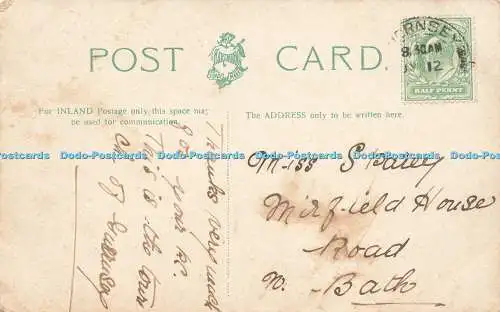 POST CARD.
GUERNSEY
8.30AM
12
HALF PENNY
For INLAND Postage only this space may
be used for communication.
The ADDRESS only to be written here.
Thanks very much
for your pc.
This is the town
of Guernsey
Miss
Mirfield House
Road
Bath
Dodo-Postcards Dodo-Postcards Dodo-Postcards Dodo-Postcards Dodo-Postcards Dodo-Postcards